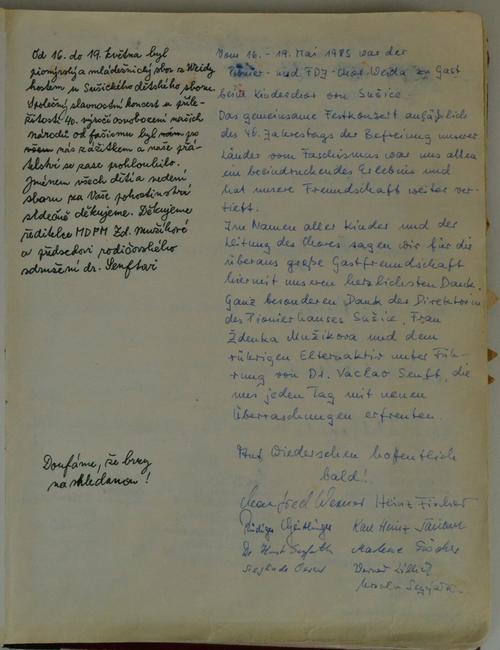 Od 16. do 19. května byl
pionýrský a mládežnický sbor z Weidy
hostem u Sušického dětského sboru.
Společný slavnostní koncert u příle-
žitosti 40. výročí osvobození našich
národů od fašismu byl
všem nás zážitkem a naše přá-
telství se zase prohloubilo.
Jménem všech dětí a vedení
sboru za Vaše pohostinství
srdečně děkujeme. Děkujeme
ředitelce MDPM Zd. Mužíkové
a předsedovi rodičovského
sdružení dr. Senftovi
Doufáme, že brzy
na shledanou!
Vom 16. - 19. Mai 1985 war der
Pionier- und FDJ-Chor Weida zu Gast
beim Kinderchor von Sušice.
Das gemeinsame Festkonzert anläßlich
des 40. Jahrestags der Befreiung unserer
Länder vom Faschismus war uns allen
ein beeindruckendes Erlebnis und
hat unsere Freundschaft weiter ver-
tieft.
Im Namen aller Kinder und der
Leitung des Chores sagen wir für die
überaus große Gastfreundschaft
hiermit unseren herzlichsten Dank.
Ganz besonderen Dank der Direktorin
des Pionierhauses Sušice, Frau
Zdenka Mužikova und dem
rührigen Elternaktiv unter Füh-
rung von Dr. Vaclav Senft, die
uns jeden Tag mit neuen
Überraschungen erfreuten.
Auf Wiedersehen hoffentlich
bald!
Manfred Werner Heinz Fischer
Karl Heinz
Dr. Horst Marlene
Werner